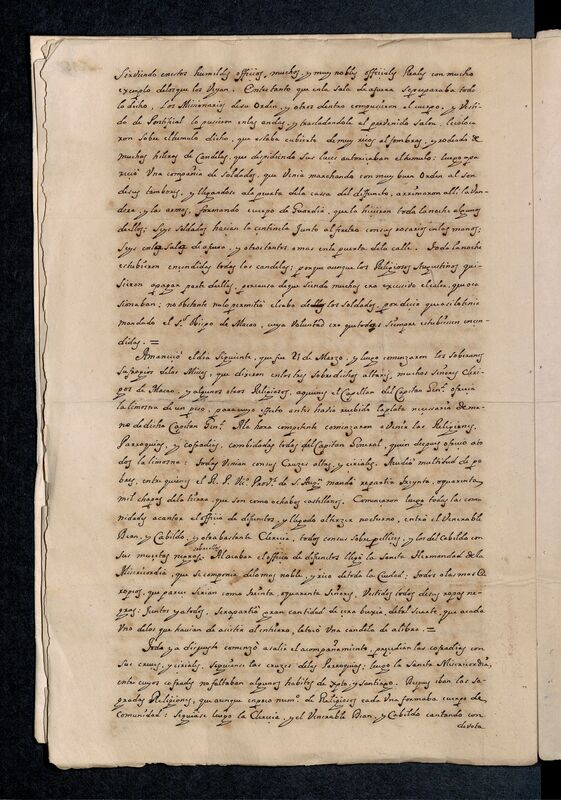 Sirviendo en estos humildes officios, muchos, y muy nobles officiales Reales con mucho
exemplo de los que los veyan. Entretanto que en la sala de afuera se preparaba todo
lo dicho, los Missionarios de su Orden, y otros dentro compusieron el cuerpo, y vesti-
do de Pontifical lo pusieron en las andas, y trasladandole al prevenido salon, le coloca-
ron sobre el tumulo dicho, que estaba cubierto de muy ricas alfombras, y rodeado de
muchas hileras de Candelas, que despidiendo sus luces autorizaban el tumulo: luego apa-
reciò Una compañia de soldados, que venia marchando con muy buen Orden al son
de sus tambores, y llegandose a la puerta de la cassa del difuncto, arrimaron alli la Van-
dera, y las armas, formando cuerpo de Guardia, que la hicieron toda la noche algunos
de ellos; Seys soldados hacian la centinela junto al feretro con sus rosarios en las manos;
Seys en la Sala de afuera, y otros tantos, o mas en la puerta de la calle. Toda la noche
estubieron encendidas todas las candelas; porque aunque los Religiosos Augustinos qui-
sieron apagar parte de ellas, por causa de que siendo muchas era excesivo el calor, que oca-
sionaban; no obstante no lo permitiò el cabo de los soldados, por decir que assi lo tenia
mandado el S.r Obispo de Macao, cuya Voluntad era que todas siempre estubiessen encen-
didas. =
Amaneciò el dia siguiente, que fue 21 de Marzo, y luego comenzaron los soberanos
sufragios de las Missas, que dixeron en los tres sobredichos altares, muchos señores Cleri-
gos de Macao, y algunos otros Religiosos, a quienes el Capellan del Capitan Gen.l ofrecia
la limosna de un peso, para cuyo effecto antes havia recibido la plata necessaria de ma-
no de dicho Capitan Gen.l A la hora competente comenzaron a venir las Religiones,
Parroquias, y cofradias, combidadas todas del Capitan General, quien despues ofreciò a to-
dos la limosna: todas venian con sus Cruzes altas, y ciriales. Acudiò multitud de po-
bres, entre quienes el R. P. Vic.o Prov.l de S. Aug.n mandò repartir treynta, o quarenta
mil chapas de la tierra, que son como ochabos castellanos. Comenzaron luego todas las comu-
nidades a cantar el officio de difunctos, y llegando al tercer nocturno, entrò el Venerable
Dean, y Cabildo, y otra bastante Clerecia, todos con sus sobrepellices, y los del Cabildo con
sus mucetas negras. Al acabar el officio de difunctos llegò la Santa Hermandad de la
Misericordia, que se componia de lo mas noble, y rico de toda la Ciudad: todos a las mas Co-
propios, que parece serian como treinta, o quarenta señores, vestidos todos de sus ropas ne-
gras. Juntos ya todos, se repartiò gran cantidad de cera buxia, de tal suerte, que a cada
Uno de los que havian de assistir al entierro, le tocò Una candela de a libra. =
Toda ya dispuesto comenzò a salir el acompañamiento, precedian las cofradias con
sus cruces, y ciriales, seguianse las cruzes de las Parroquias: luego la Santa Misericordia,
entre cuyos cofrades no faltaban algunos habitos de Xpto, y santiago. Despues iban las Sa-
gradas Religiones, que aunque en poco num.o de Religiosos cada Una formaba cuerpo de
Comunidad: seguiase luego la Clerecia, y el Venerable Dean, y Cabildo cantando con
devota